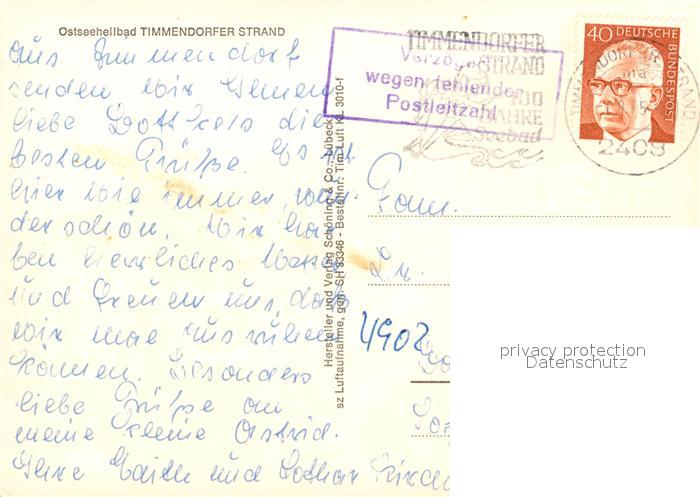 Ostseeheilbad TIMMENDORFER STRAND
Aus Timmendorf
senden wir Ihnen
liebe die
besten Grüße. Es ist
hier wie immer, wun-
derschön. Wir ha-
ben herrliches Wetter
und freuen uns, daß
wir mal ausruhen
können. Besonders
liebe Grüße an
meine kleine Astrid.
Ihre und Lothar
Hersteller und Verlag Schöning & Co., Lübeck
sz Luftaufnahme, gen. SH 83346 - Bestellnr. Tim Luft KL 3010-f
TIMMENDORFER
STRAND
100
JAHRE
Seebad
Verzögert
wegen fehlender
Postleitzahl
40 DEUTSCHE
BUNDESPOST
TIMMENDORFER STRAND
2408
Fam.
Dr.
4902
privacy protection
Datenschutz